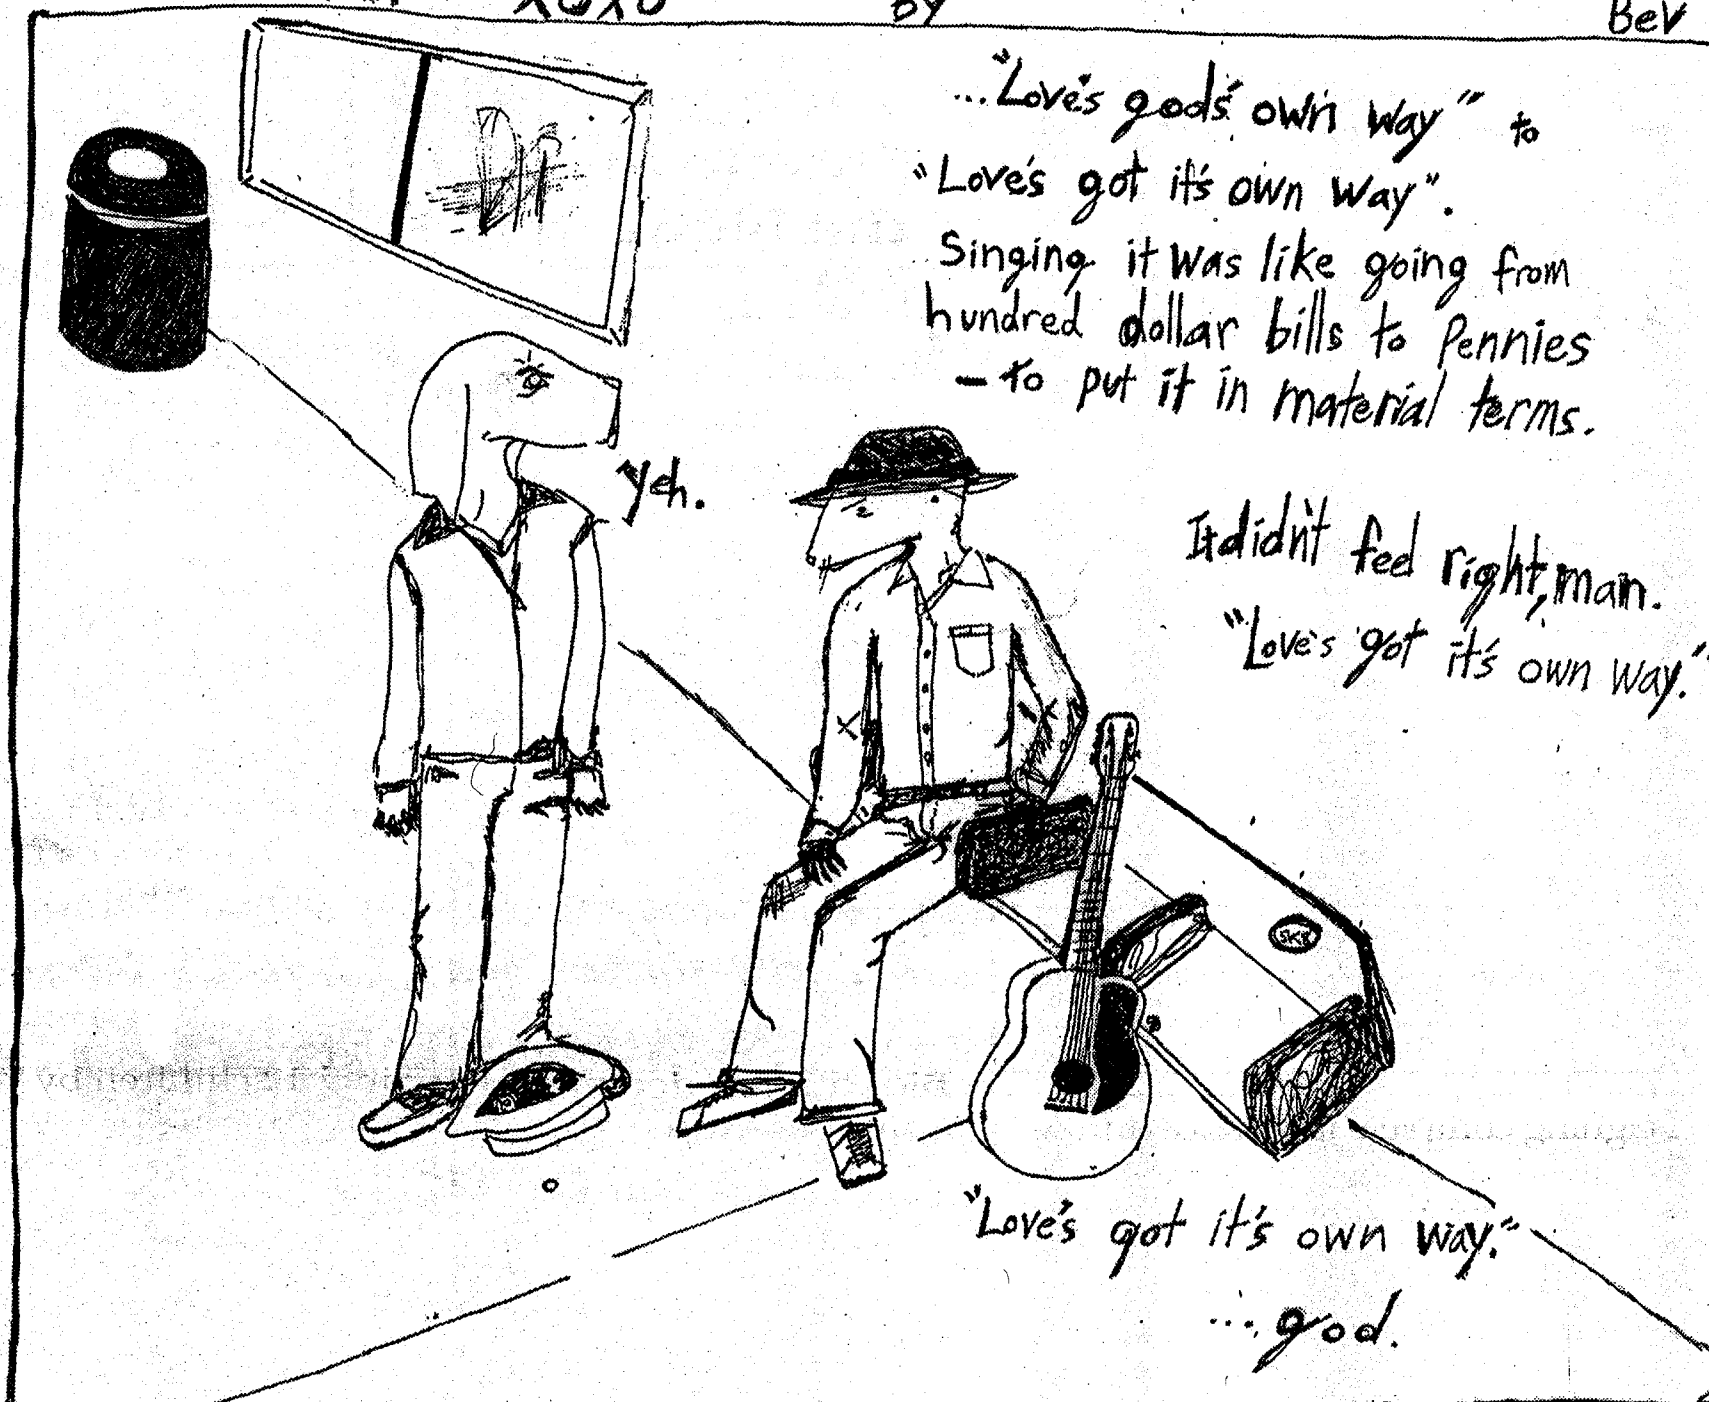 XOXO by Bev
..."Love's gods' own way" to
"Love's got it's own way".
Singing it was like going from
hundred dollar bills to pennies
- to put it in material terms.
yeh.
It didn't feel right, man.
"Love's got it's own way."
"Love's got it's own way."
...god.